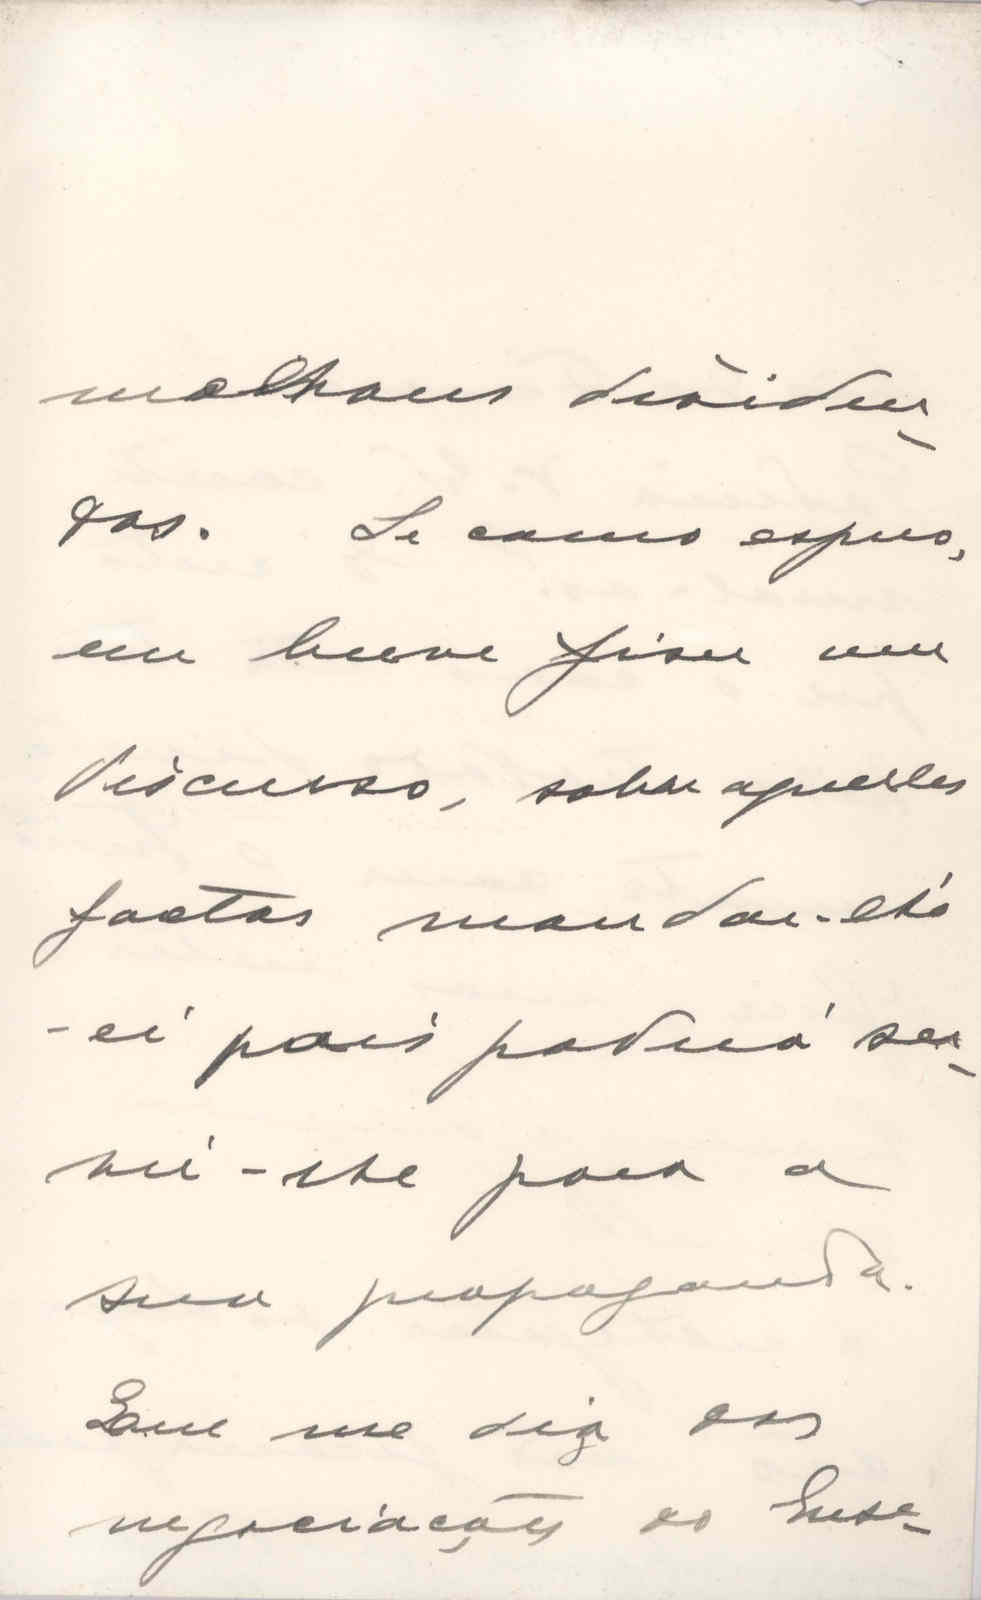 melhores dividen-
dos. Se como espero,
em breve fizer um
discurso, sobre aquelles
factos mandar-lh'o
-ei pois poderá ser-
vir-lhe para a
sua propaganda.
Que me diz das
negociações do